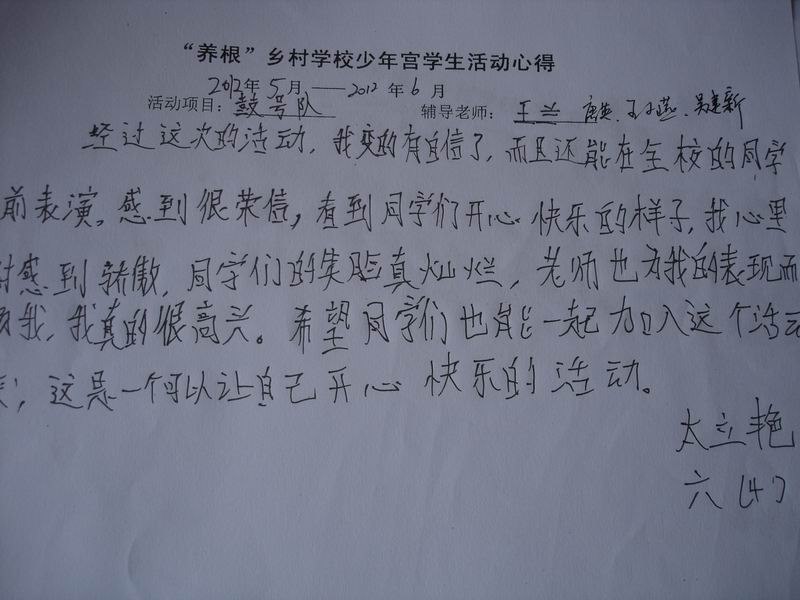 “养根”乡村学校少年宫学生活动心得
2012年 5月 ——2012 年 6 月
活动项目：鼓号队 辅导老师： 王兰 唐英、王小燕、吴建新
经过这次的活动，我变的有自信了，而且还能在全校的同学
前表演，感到很荣信，看到同学们开心快乐的样子，我心里
感到骄傲，同学们的笑脸真灿烂，老师也为我的表现而
我，我真的很高兴。希望同学们也能一起加入这个活动
，这是一个可以让自己开心快乐的活动。
太立艳
六（4）